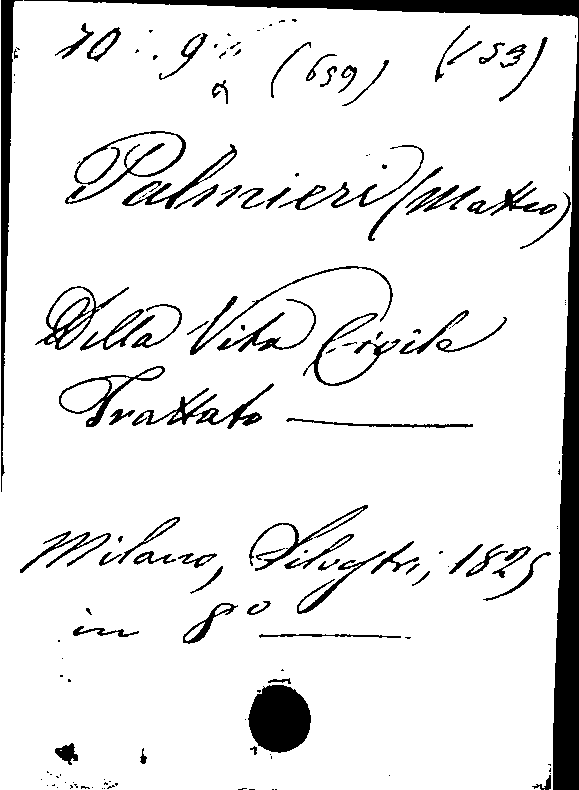 70 . 9
a (659) (153)
Palmieri (Matteo)
Della Vita Civile
Trattato
Milano, Silvestri, 1825
in 8°